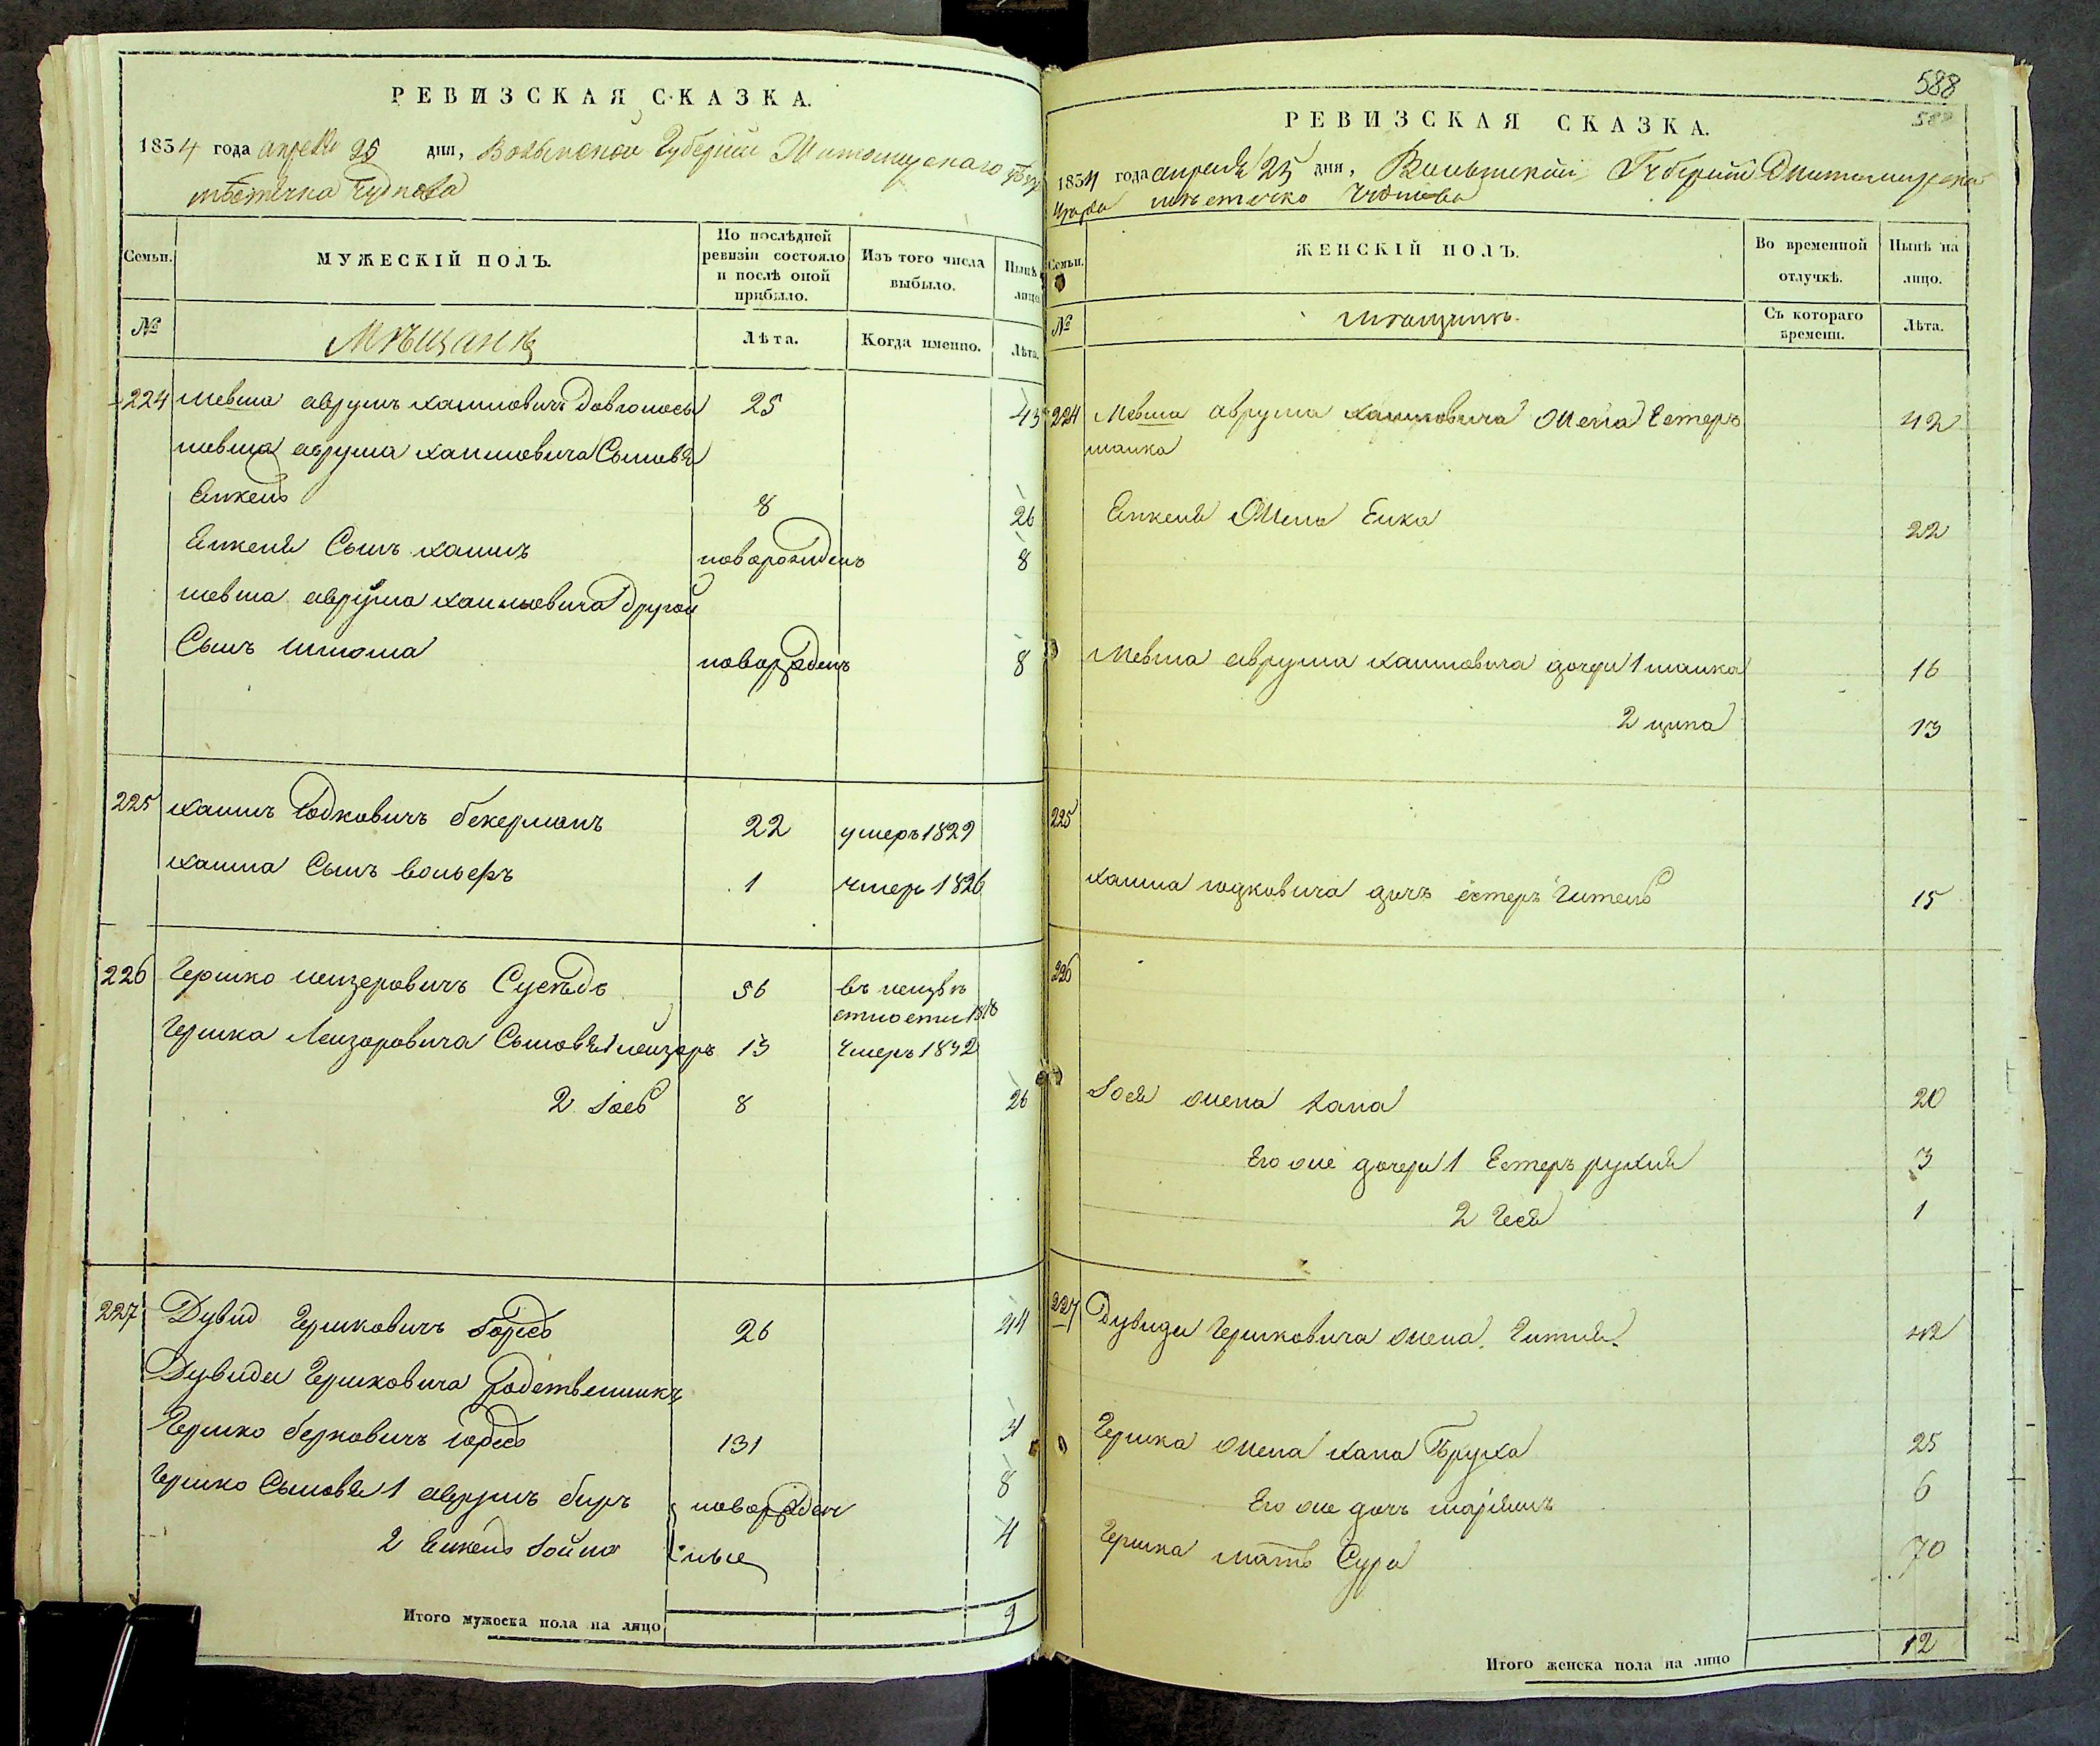 РЕВИЗСКАЯ СКАЗКА.
1834 года апреля 25 дня, Волынской Губернии Житомирского уезда
местечка Чуднова
Семьи.
МУЖЕСКІЙ ПОЛЪ.
По послѣдней ревизіи состояло и послѣ оной прибыло.
Изъ того числа выбыло.
Нынѣ на лицо.
№
Мѣщанѣ
Лѣта.
Когда именно.
Лѣта.
224 Мевша аврумъ хаимовичъ Довгоносы 25 43
мевша аврума хаимовича Сыновя
Янкель 8 26
Янкеля Сынъ хаимъ новорожденъ 8
мевша аврума хаимовича другой
Сынъ шлиома новорожденъ 8
225 хаимъ Іодковичъ бекерманъ 22 умеръ 1829
хаима Сынъ вольфъ 1 умеръ 1826
226 Гершко лейзеровичъ Суседъ 56 въ неизвѣ
стности 1818
Гершка Лейзоровича Сыновя 1 лейзоръ 13 Умеръ 1832
2 Іось 8 26
227 Дувид Гершковичъ 26 44
Дувида Гершковича родственникъ
Гершко берковичъ 131 31
Гершко Сыновя 1 аврумъ беръ новорожден 8
2 Янкель Іойна ные 4
Итого мужеска пола на лицо 9
588
РЕВИЗСКАЯ СКАЗКА.
1834 года апреля 25 дня, Волынской Губернии Житомирскаго
Уезда местечко Чуднова
Семьи.
ЖЕНСКІЙ ПОЛЪ.
Во временной отлучкѣ.
Нынѣ на лицо.
№
Мещанкъ
Съ котораго времени.
Лѣта.
224 Мевша аврума хаимовича жена Естеръ 42
малка
Янкеля Жена Ейка 22
Мевша аврума хаимовича дочери 1 малка 16
2 ципа 13
225
хаима иодковича дочь естеръ Гитель 15
226
Іося жена хана 20
Его же дочери 1 Естеръ рухля 3
2 Геся 1
227 Дувида Гершковича жена Гитля 42
Гершка жена хана Бруха 25
Его же дочь марьямъ 6
Гершка мать Сура 70
Итого женска пола на лицо 12